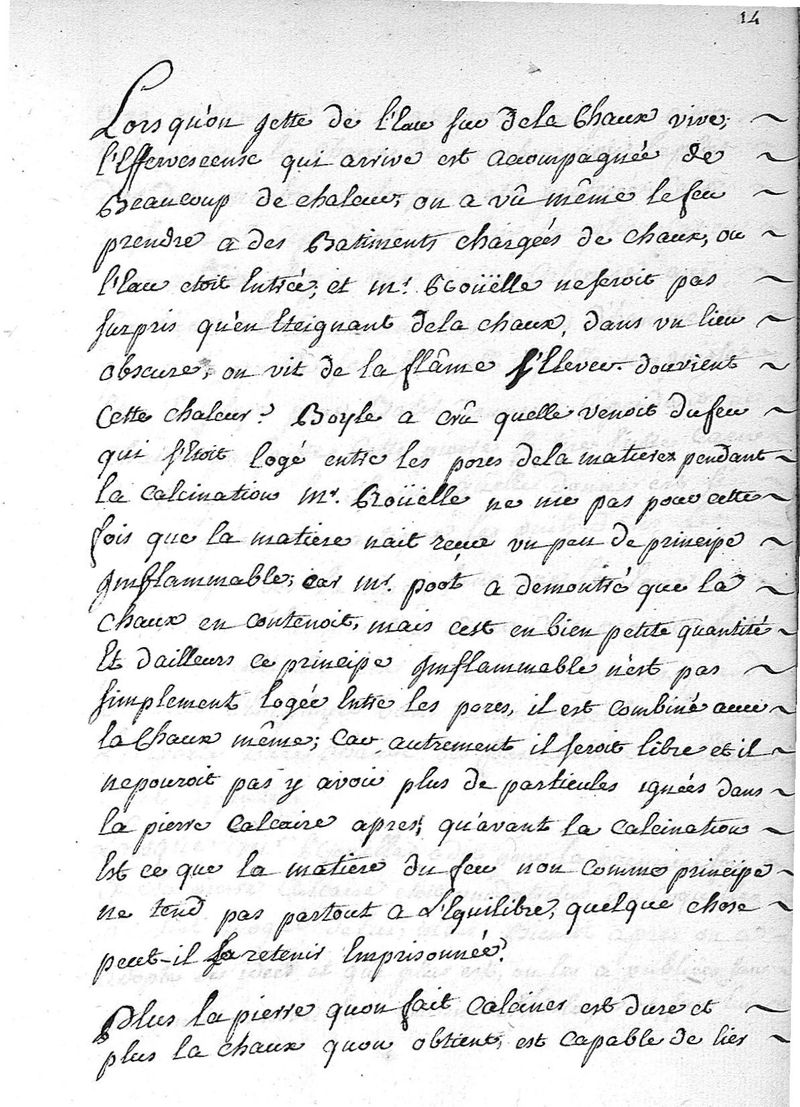 14
Lors qu'on jette de l'Eau sur dela Chaux vive,
l'Effervescense qui arrive est accompagnée de
Beaucoup de chaleur, on a vû même le feu
prendre a des Batiments chargées de chaux, ou
l'Eau etoit Entrée; et mr. Roüelle ne seroit pas
surpris qu'en Eteignant dela chaux, dans un lieu
obscure, on vit de la flâme s'Elever. douvient
cette chaleur? Boyle a crû quelle venoit du feu
qui s'Etoit logé entre les pores dela matierez pendant
la calcination mr. Roüelle ne nie pas pour cette
fois que la matiere nait reçue un peu de principe
Inflammable; car mr. poot a demontré que la
chaux en contenoit, mais cest en bien petite quantité
Et dailleurs ce principe Inflammable n'est pas
simplement logée Entre les pores, il est combiné avec
la Chaux même; Car autrement il seroit libre et il
ne pouroit pas y avoir plus de particules ignées dans
la pierre Calcaire apres, qu'avant la calcination
Est ce que la matiere du feu non comme principe
ne tend pas partout a L'Equilibre, quelque chose
peut-il la retenir Emprisonnée?
Plus la pierre quon fait Calciner est dure et
plus la chaux quon obtient, est capable de lier